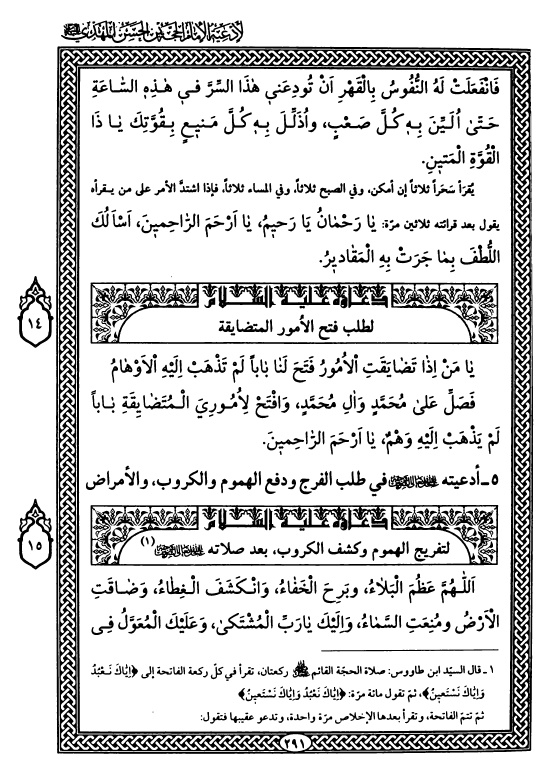 لأدعية الإمام الحجّة بن الحسن المهدي
فَانْفَعَلَتْ لَهُ النُّفُوسُ بِالْقَهْرِ اَنْ تُودِعَنى هٰذَا السِّرَّ فى هٰذِهِ السّٰاعَةِ
حَتّىٰ اُلَيِّنَ بِهِ كُلَّ صَعْبٍ، واُذَلِّلَ بِهِ كُلَّ مَنيعٍ بِقُوَّتِكَ يٰا ذَا
القُوَّةِ الْمَتينِ.
يُقرَأ سَحَراً ثلاثاً إن أمكن، وفي الصبح ثلاثاً، وفي المساء ثلاثاً، فإذا اشتدَّ الأمر على من يقرأه
يقول بعد قرائته ثلاثين مرّة: يٰا رَحْمٰانُ يٰا رَحيمُ، يٰا اَرْحَمَ الرّٰاحِمينَ، اَسْاَلُكَ
اللُّطْفَ بِمٰا جَرَتْ بِهِ الْمَقٰاديرُ.
دعاؤه عليه السلام
١٤
لطلب فتح الأمور المتضايقة
يٰا مَنْ اِذٰا تَضٰايَقَتِ الْاُمُورُ فَتَحَ لَنٰا بٰاباً لَمْ تَذْهَبْ اِلَيْهِ الْاَوْهٰامُ
فَصَلِّ عَلىٰ مُحَمَّدٍ وَاٰلِ مُحَمَّدٍ، وَافْتَحْ لِاُمُورِيَ الْمُتَضٰايِقَةِ بٰاباً
لَمْ يَذْهَبْ اِلَيْهِ وَهْمٌ، يٰا اَرْحَمَ الرّٰاحِمينَ.
٥ ـ أدعيته في طلب الفرج ودفع الهموم والكروب، والأمراض
دعاؤه عليه السلام
١٥
لتفريج الهموم وكشف الكروب، بعد صلاته (١)
اَللّٰهُمَّ عَظُمَ الْبَلٰاءُ، وبَرِحَ الْخَفٰاءُ، وَانْكَشَفَ الْغِطٰاءُ، وَضٰاقَتِ
الْاَرْضُ ومُنِعَتِ السَّمٰاءُ، وَاِلَيْكَ يٰارَبِّ الْمُشْتَكىٰ، وَعَلَيْكَ الْمُعَوَّلُ فِى
١ ـ قال السيّد ابن طاووس: صلاة الحجّة القائم ركعتان، تقرأ في كلّ ركعة الفاتحة إلى ﴿اِيّٰاكَ نَعْبُدُ
وَاِيّٰاكَ نَسْتَعينُ﴾، ثمّ تقول مائة مرّة: ﴿اِيّٰاكَ نَعْبُدُ وَاِيّٰاكَ نَسْتَعينُ﴾
ثمّ تتمّ الفاتحة، وتقرأ بعدها الإخلاص مرّة واحدة، وتدعو عقيبها فتقول:
٢٩١